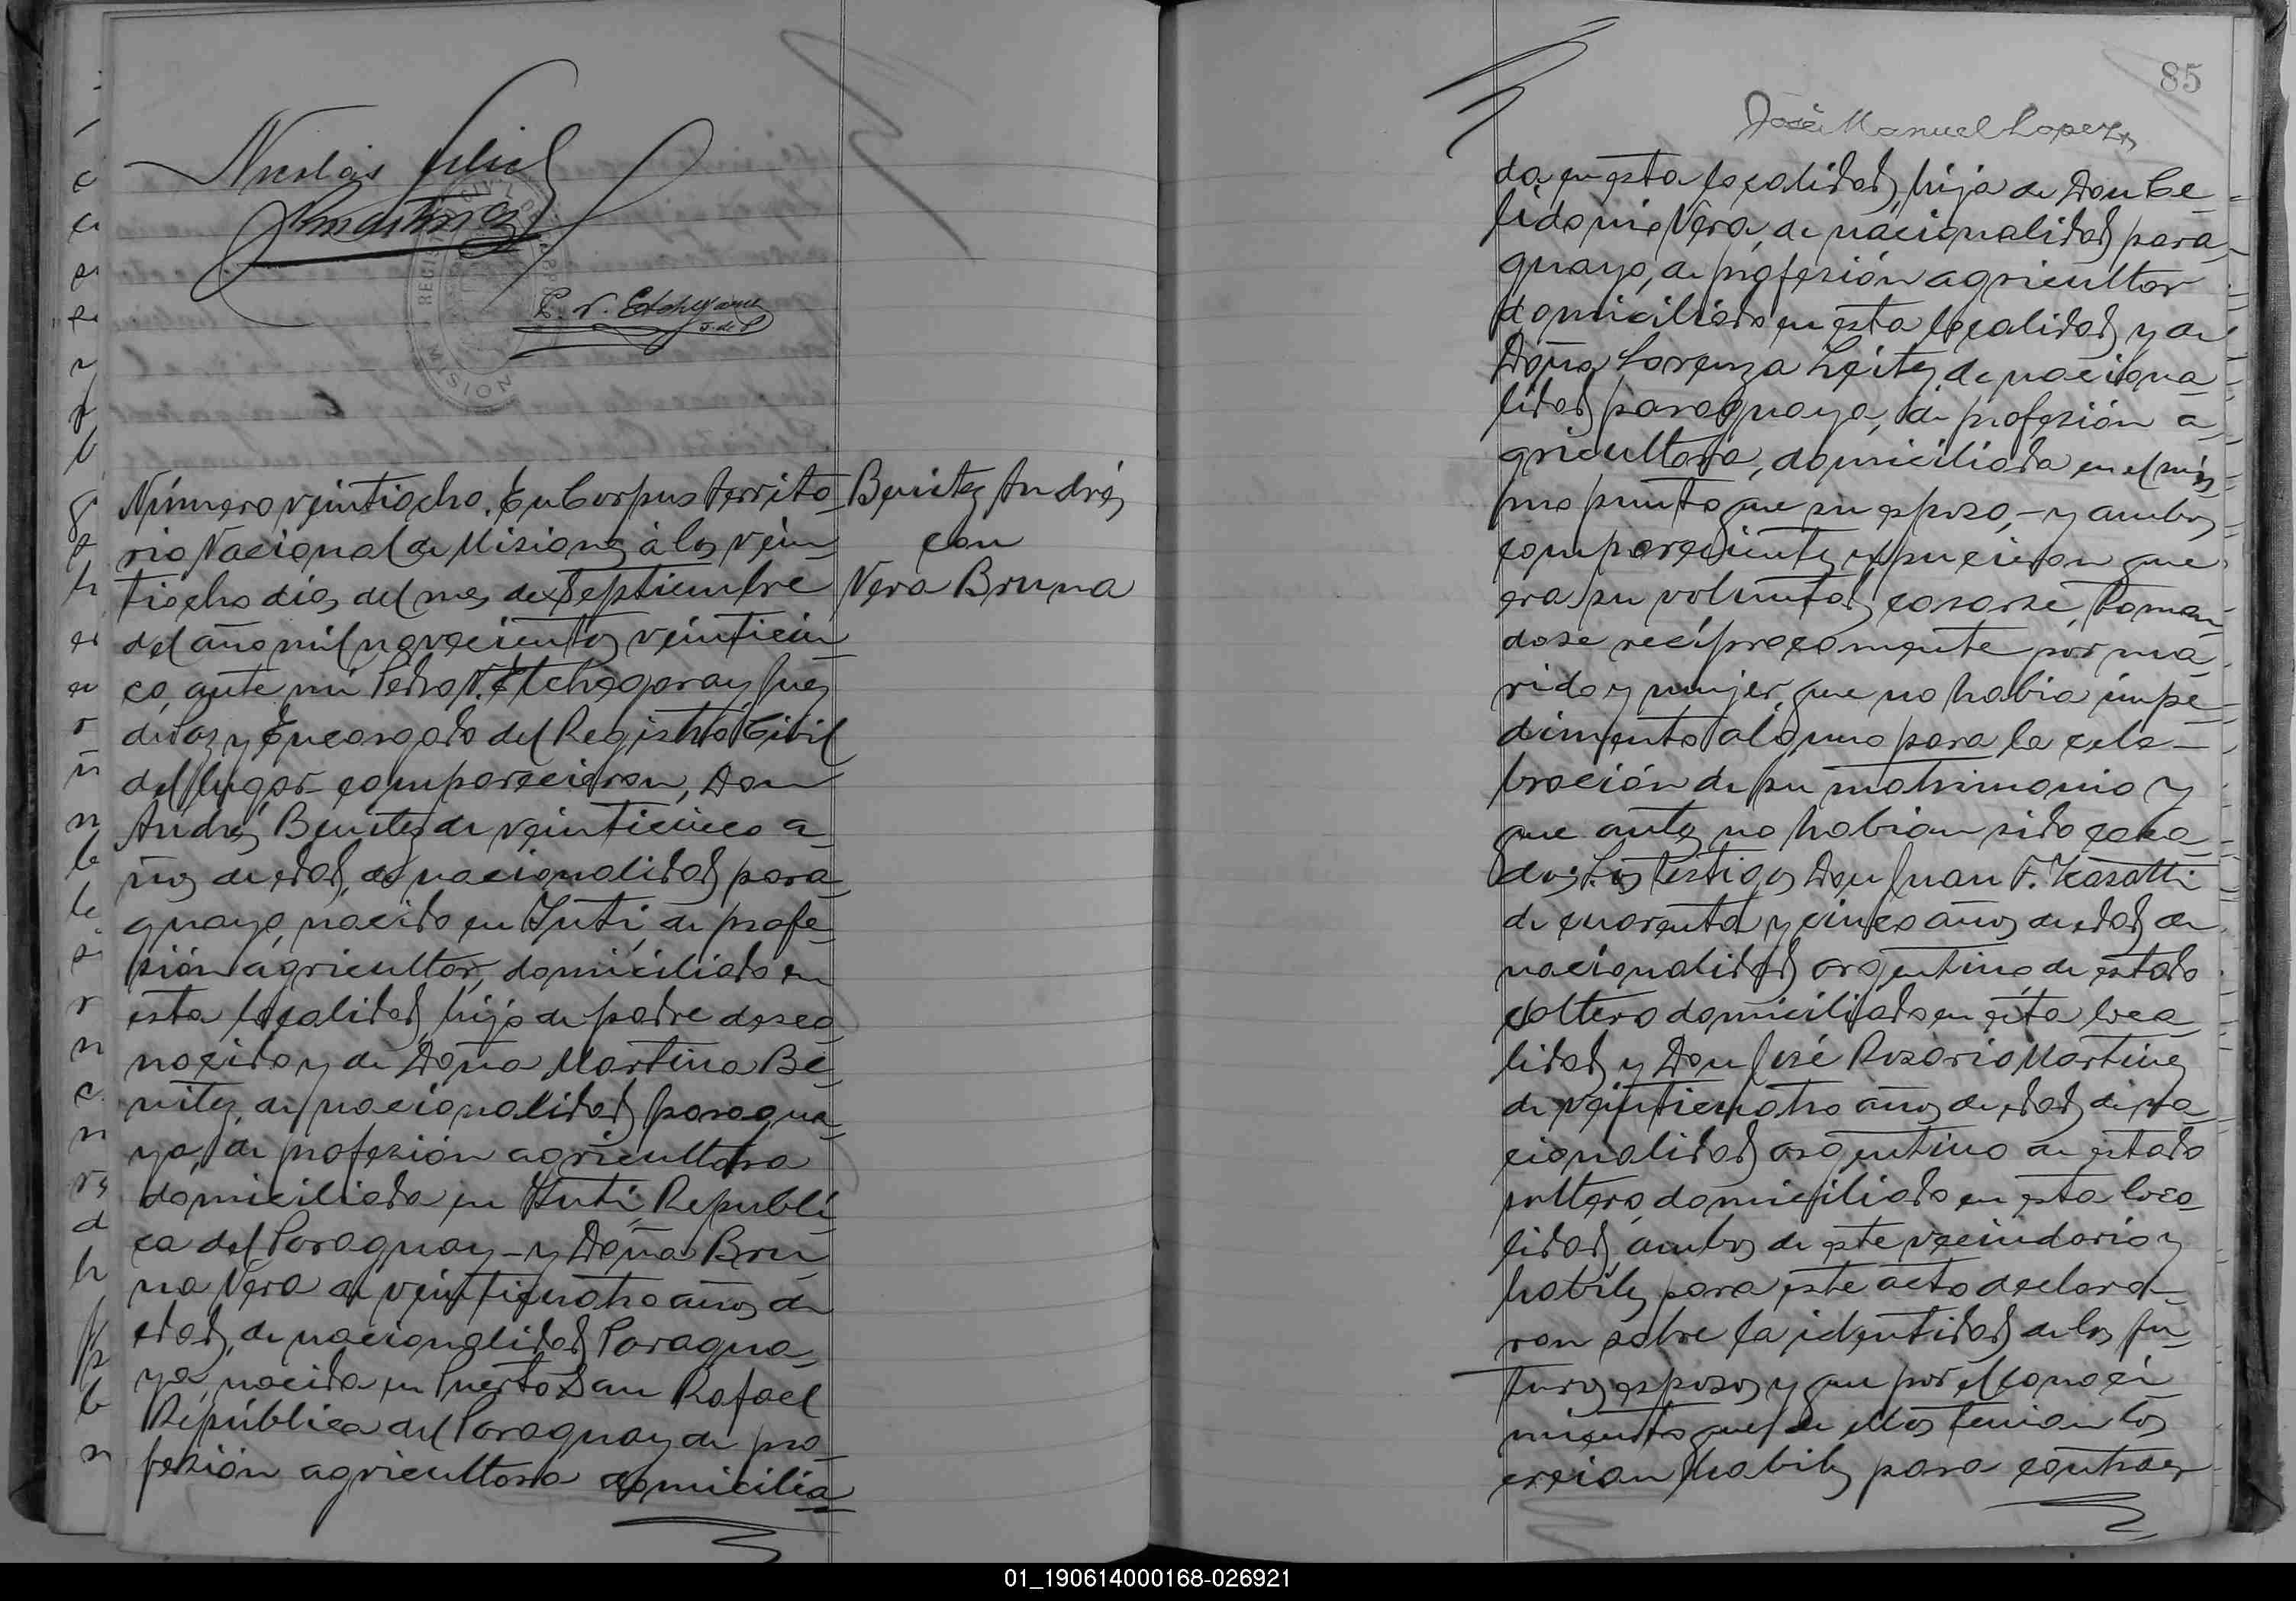 Nicolás
P. N. Etchegaray
J. de P
REGIS
CIVIL
MISION
Número veintiocho. En Corpus Territo
rio Nacional de Misiones á los vein
tiocho dias del mes de Septiembre
del año mil novecientos veinticin
co, ante mi Pedro N. Etchegaray, Juez
de Paz y Encargado del Registro Civil
del lugar comparecieron, Don
Andrés Benitez de veinticinco a
ños de edad, de nacionalidad para
guayo, nacido en Yuti, de profe
sión agricultor, domiciliado en
esta localidad, hijo de padre desco
nocido y de Doña Martina Be
nitez, de nacionalidad paragua
ya, de profesión agricultora
domiciliada en Yuti, Republi
ca del Paraguay - y Doña Bru
na Vera de veinticuatro años de
edad, de nacionalidad Paragua
ya, nacida en Puerto San Rafael
República del Paraguay de pro
fesión agricultora domicilia
Benitez Andrés
con
Vera Bruna
85
José Manuel Lopez
da en esta localidad, hija de Don Ce
lidonio Vera, de nacionalidad para
guayo, de profesión agricultor
domiciliado en esta localidad y de
Doña Lorenza Leites, de naciona
lidad paraguaya, de profesión a
gricultora, domiciliada en el mis
mo punto que su esposo, - y ambos
comparecientes expucieron que
era su voluntad casarse, toman
dose reciprocamente por ma
rido y mujer, que no habia impe
dimento alguno para la cele
bración de su matrimonio y
que antes no habian sido casa
dos. Los testigos Don Juan F.
de cuarenta y cinco años de edad de
nacionalidad argentino, de estado
soltero domiciliado en esta loca
lidad y Don José Rosario Martinez
de veinticuatro años de edad, de na
cionalidad argentino de estado
soltero, domiciliado en esta loca
lidad, ambos de este vecindario y
habiles para este acto declara
ron sobre la identidad de los fu
turos esposos y que por el conoci
miento que de ellos tenian los
creian habiles para contraer
01_190614000168-026921